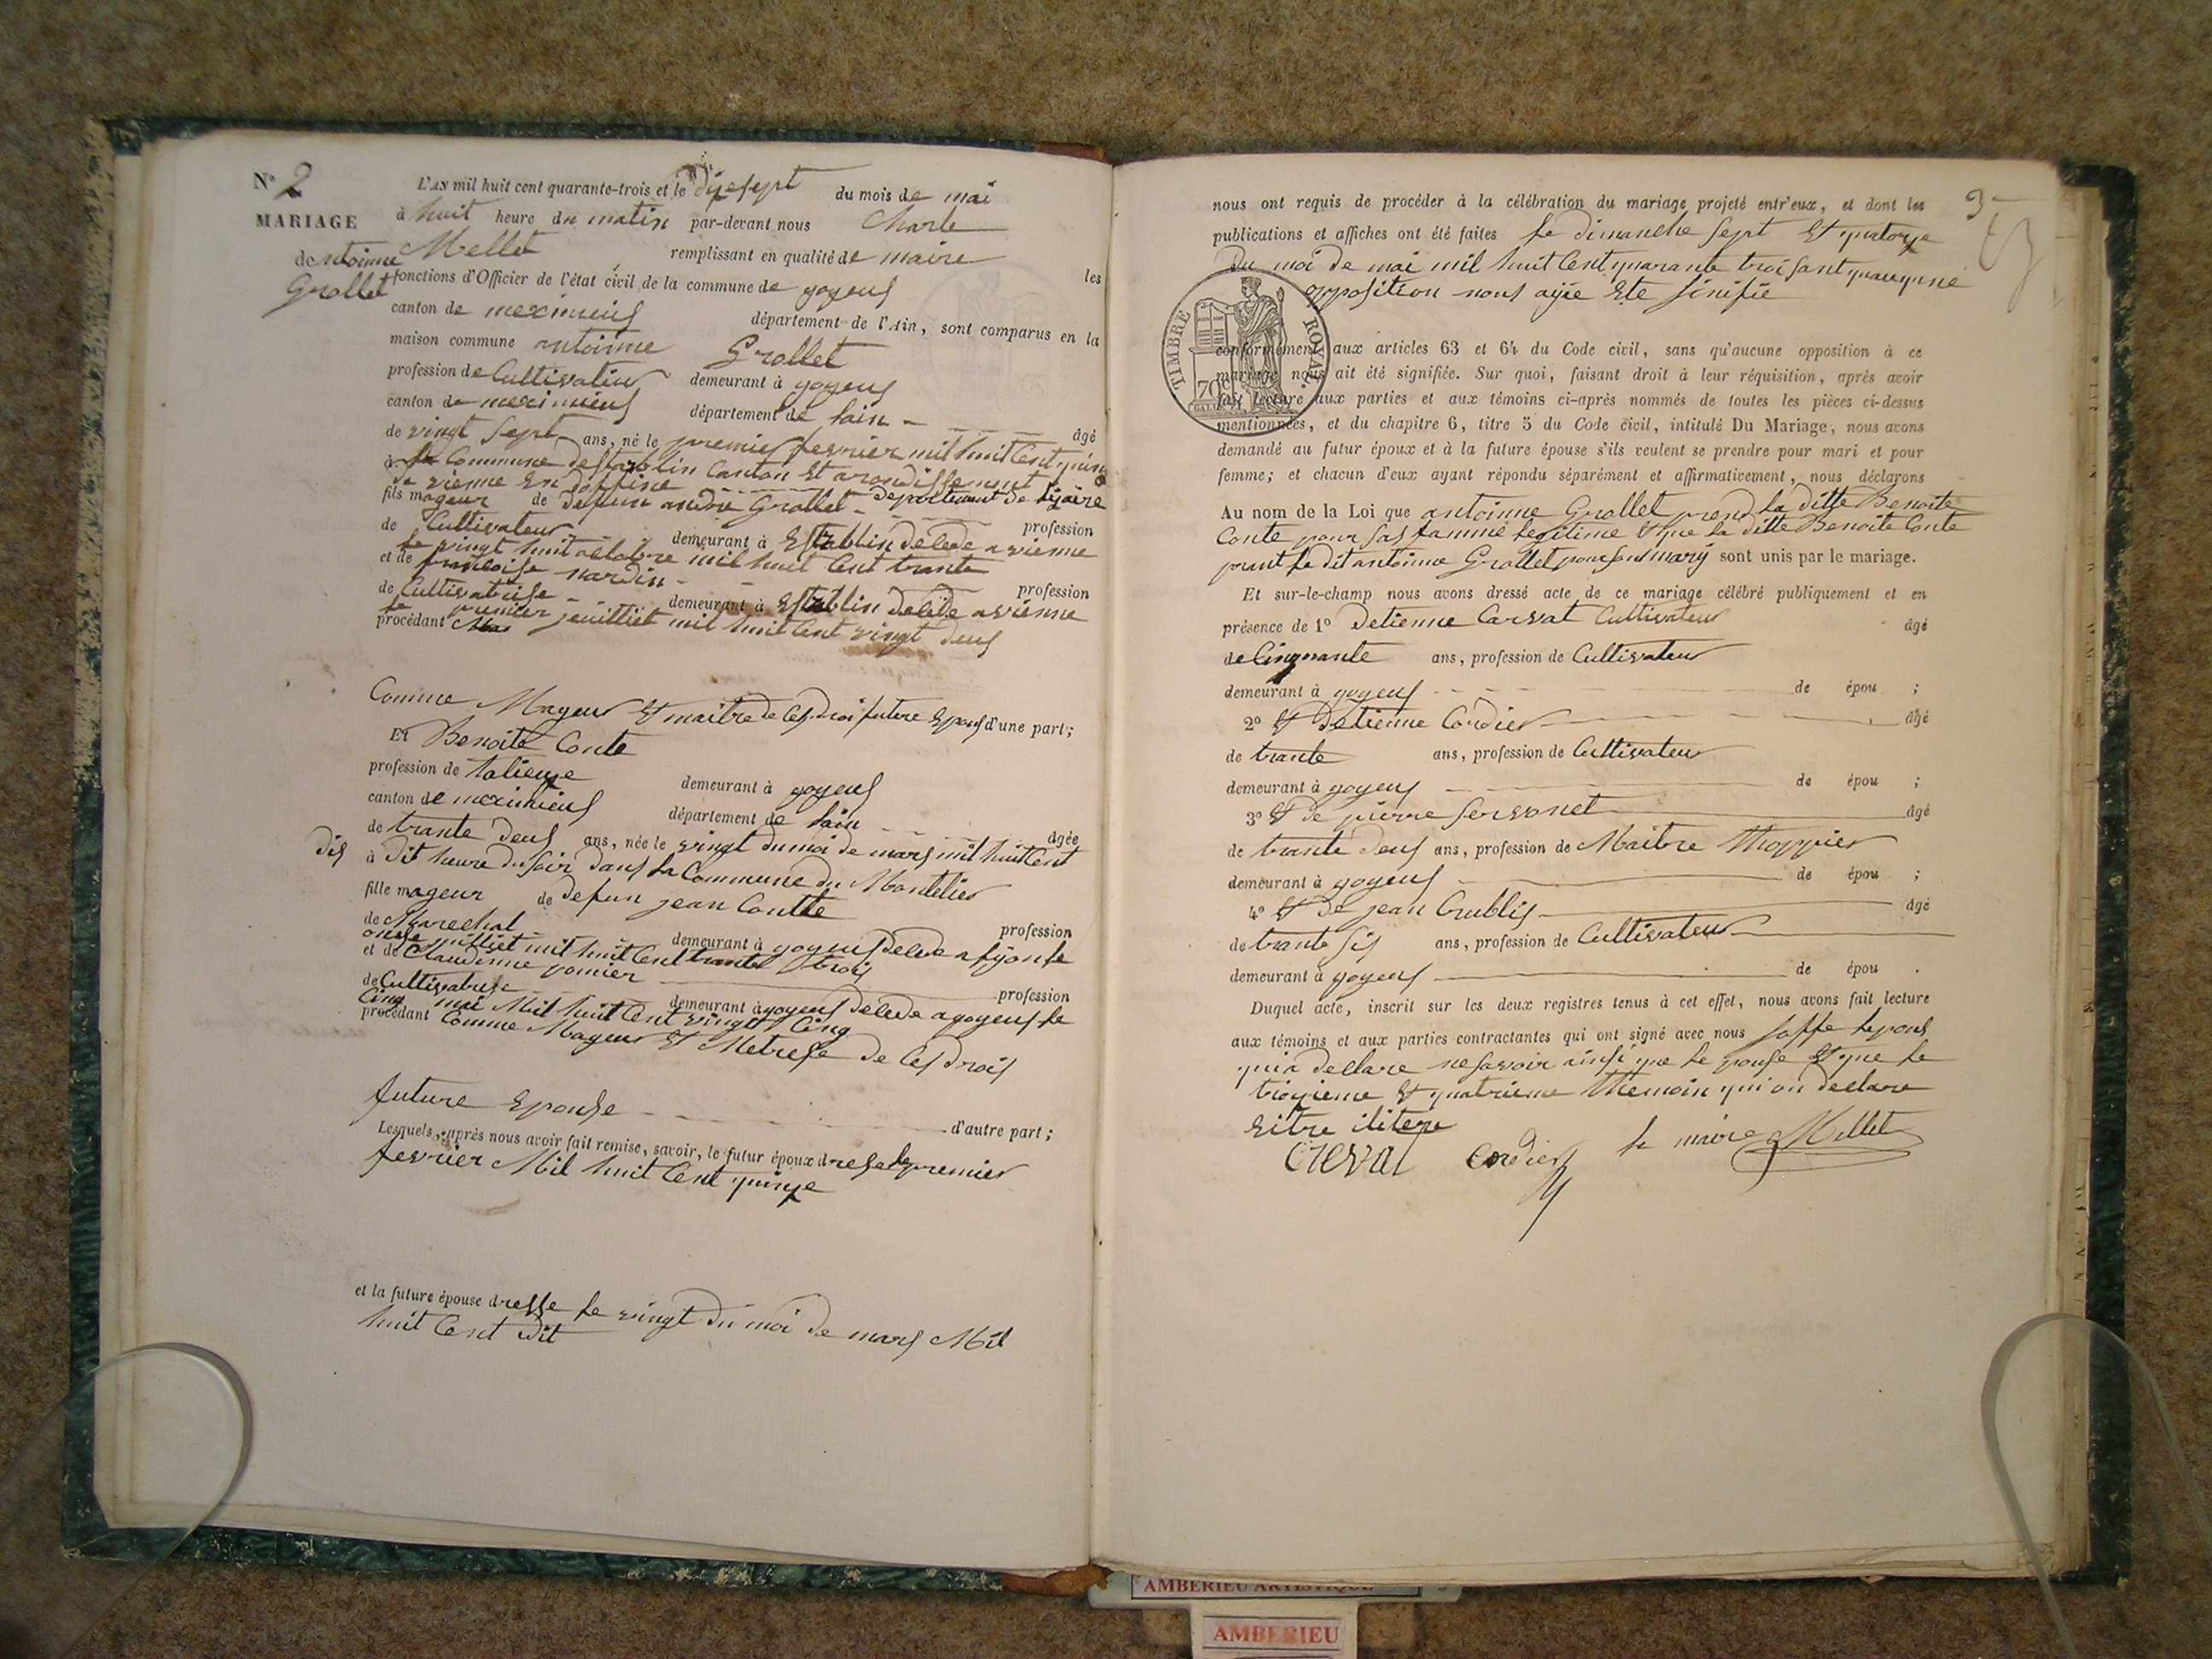 N° 2
MARIAGE
de antoinne
Grollet
L'AN mil huit cent quarante-trois et le dixsept du mois de mai
à huit heure du matin par-devant nous Charle
Mellet remplissant en qualité de maire les
fonctions d'Officier de l'état civil de la commune de joyeus
canton de meximieus département de l'Ain, sont comparus en la
maison commune antoinne Grollet
profession de Cultivateur demeurant à joyeus
canton de meximieus département de lain âgé
de vingt Sept ans, né le premier fevrier mil huit Cent quinze
à Commune destablin Canton Et arondissement
de vienne En dofine departement de lizaire
fils mageur de defun andre Grollet
profession
de Cultivateur demeurant à Establin delede a vienne
le vingt huit altobre mil huit Cent trante
et de francoise nardin
profession
de Cultivatrise demeurant à Establin delede a vienne
le premier jeuilliet mil huit Cent vingt deus
procédant
Comme Mageur Et maitre de Ces droi future Epous d'une part;
Et Benoite Conte
profession de talieuze demeurant à joyeus
canton de meximieus département de lain
de trante deus ans, née le vingt du moi de mars mil huit Cent âgée
dis à dit heure du soir dans la Commune du Montelier
fille mageur de defun jean Contte
profession
de Marechal demeurant à joyeus delede a lyon le
onse juilliet mil huit Cent trante trois
et de Claudinne pomier
profession
de Cultivatrise demeurant à joyeus delede a joyeus le
Cinq mai Mil huit Cent vingt Cinq
procédant Comme Mageur Et Metrese de Ces drois
future Epouse d'autre part;
Lesquels, après nous avoir fait remise, savoir, le futur époux drese le premier
fevrier Mil huit Cent quinze
et la future épouse dresse le vingt du moi de mars Mil
huit Cent dit
nous ont requis de procéder à la célébration du mariage projeté entr'eux, et dont les
publications et affiches ont été faites le dimanche Sept Et quatorze
du moi de mai mil huit Cent quarante trois sant quauqune
opposition nous ayie Ete sinifie
TIMBRE ROYAL.
70c
conformément aux articles 63 et 64 du Code civil, sans qu'aucune opposition à ce
mariage nous ait été signifiée. Sur quoi, faisant droit à leur réquisition, après avoir
fait lecture aux parties et aux témoins ci-après nommés de toutes les pièces ci-dessus
mentionnées, et du chapitre 6, titre 5 du Code civil, intitulé Du Mariage, nous avons
demandé au futur époux et à la future épouse s'ils veulent se prendre pour mari et pour
femme; et chacun d'eux ayant répondu séparément et affirmativement, nous déclarons
Au nom de la Loi que antoinne Grollet prend la ditte Benoite
Conte pour sas famme legitime Et que la ditte Benoite Conte
prant le dit antoinne Grollet pour son mary sont unis par le mariage.
Et sur-le-champ nous avons dressé acte de ce mariage célébré publiquement et en
présence de 1° detienne Carvat Cultivateur âgé
de Cinquante ans, profession de Cultivateur
demeurant à joyeus de épou ;
2° Et detienne Cordier âgé
de trante ans, profession de Cultivateur
demeurant à joyeus de épou ;
3° Et de pierre Servonet âgé
de trante deus ans, profession de Maitre
demeurant à joyeus de épou ;
4° Et de jean Crublis âgé
de trante sis ans, profession de Cultivateur
demeurant à joyeus de épou .
Duquel acte, inscrit sur les deux registres tenus à cet effet, nous avons fait lecture
aux témoins et aux parties contractantes qui ont signé avec nous soffe lepous
qui a declare ne savoir ainsi que le pouse Et que le
troizieme Et quatrieme themoin qui on declare
Eitre ilitere
Creval Cordier le maire Mellet
AMBERIEU ARTISTIQUE
AMBERIEU